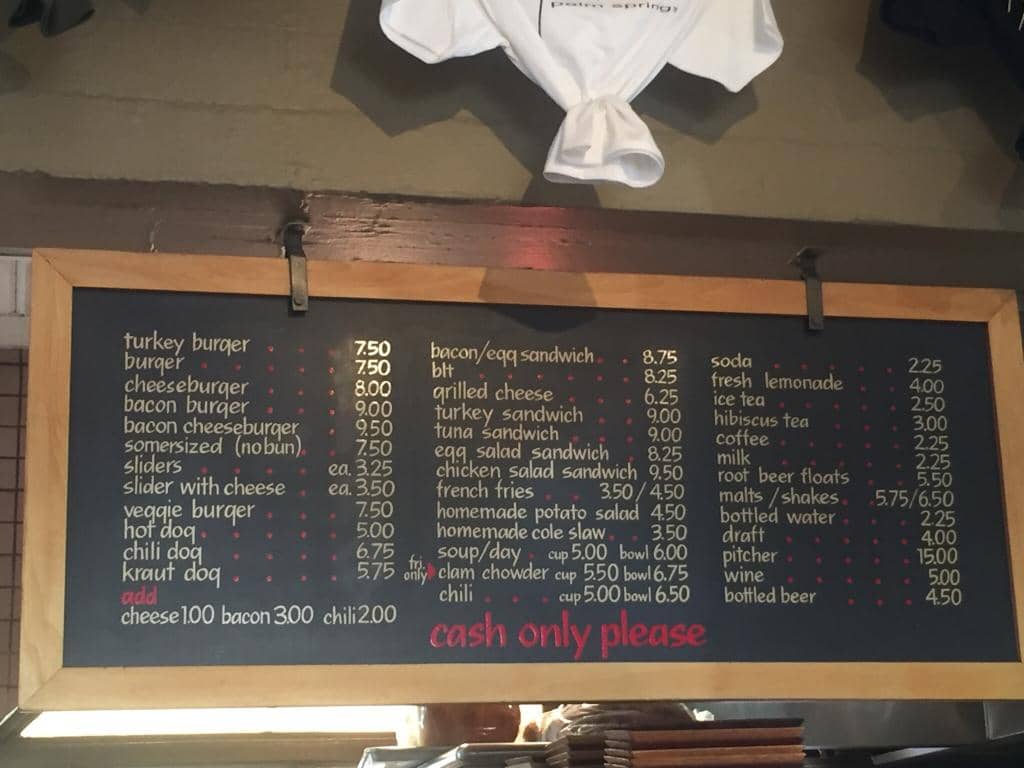 palm springs
turkey burger 7.50
burger 7.50
cheeseburger 8.00
bacon burger 9.00
bacon cheeseburger 9.50
somersized (no bun) 7.50
sliders ea. 3.25
slider with cheese ea. 3.50
veggie burger 7.50
hot dog 5.00
chili dog 6.75
kraut dog 5.75
add
cheese 1.00 bacon 3.00 chili 2.00
bacon/egg sandwich 8.75
blt 8.25
grilled cheese 6.25
turkey sandwich 9.00
tuna sandwich 9.00
egg salad sandwich 8.25
chicken salad sandwich 9.50
french fries 3.50/4.50
homemade potato salad 4.50
homemade cole slaw 3.50
soup/day cup 5.00 bowl 6.00
fri. only clam chowder cup 5.50 bowl 6.75
chili cup 5.00 bowl 6.50
soda 2.25
fresh lemonade 4.00
ice tea 2.50
hibiscus tea 3.00
coffee 2.25
milk 2.25
root beer floats 5.50
malts/shakes 5.75/6.50
bottled water 2.25
draft 4.00
pitcher 15.00
wine 5.00
bottled beer 4.50
cash only please